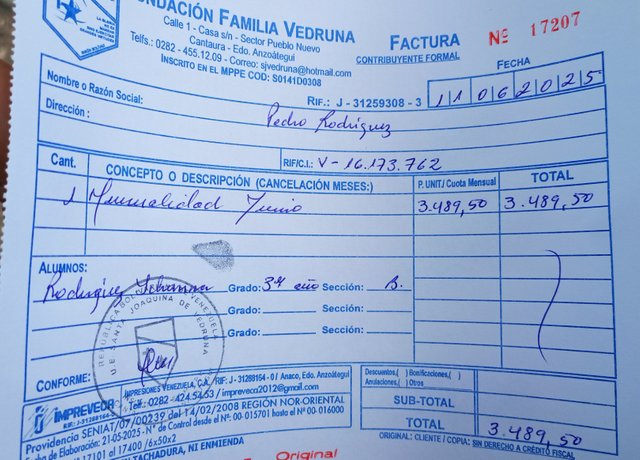 FUNDACIÓN FAMILIA VEDRUNA
Calle 1 - Casa s/n - Sector Pueblo Nuevo
Cantaura - Edo. Anzoátegui
Telfs.: 0282 - 455.12.09 - Correo: sjvedruna@hotmail.com
INSCRITO EN EL MPPE COD: S0141D0308
FACTURA
CONTRIBUYENTE FORMAL
Nº 17207
FECHA
RIF.: J - 31259308 - 3
11062025
Nombre o Razón Social:
Pedro Rodríguez
Dirección :
RIF/C.I.: V-16.173.762
Cant. CONCEPTO O DESCRIPCIÓN (CANCELACIÓN MESES:) P. UNIT./ Cuota Mensual TOTAL
1 Mensualidad Junio 3.489,50 3.489,50
ALUMNOS:
Rodríguez Grado: 3er año Sección: B.
Grado: Sección:
Grado: Sección:
REPUBLICA BOLIVARIANA DE VENEZUELA
U.E SANTA JOAQUINA DE VEDRUNA
CONFORME:
Descuentos,( ) Bonificaciones,( )
Anulaciones,( ) Otros
SUB-TOTAL
TOTAL 3.489,50
ORIGINAL: CLIENTE / COPIA: SIN DERECHO A CRÉDITO FISCAL
IMPREVECA
IMPRESIONES VENEZUELA, C.A., RIF: J - 31288154 - 0 / Anaco, Edo. Anzoátegui
Telf.: 0282 - 424.54.53 / impreveca2012@gmail.com
Providencia SENIAT/07/00239 del 14/02/2008 REGIÓN NOR-ORIENTAL
Fecha de Elaboración: 21-05-2025 - N° de Control desde el N° 00-015701 hasta el N° 00-016000
17101 al 17400 /6x50x2
TACHADURA, NI ENMIENDA
Original